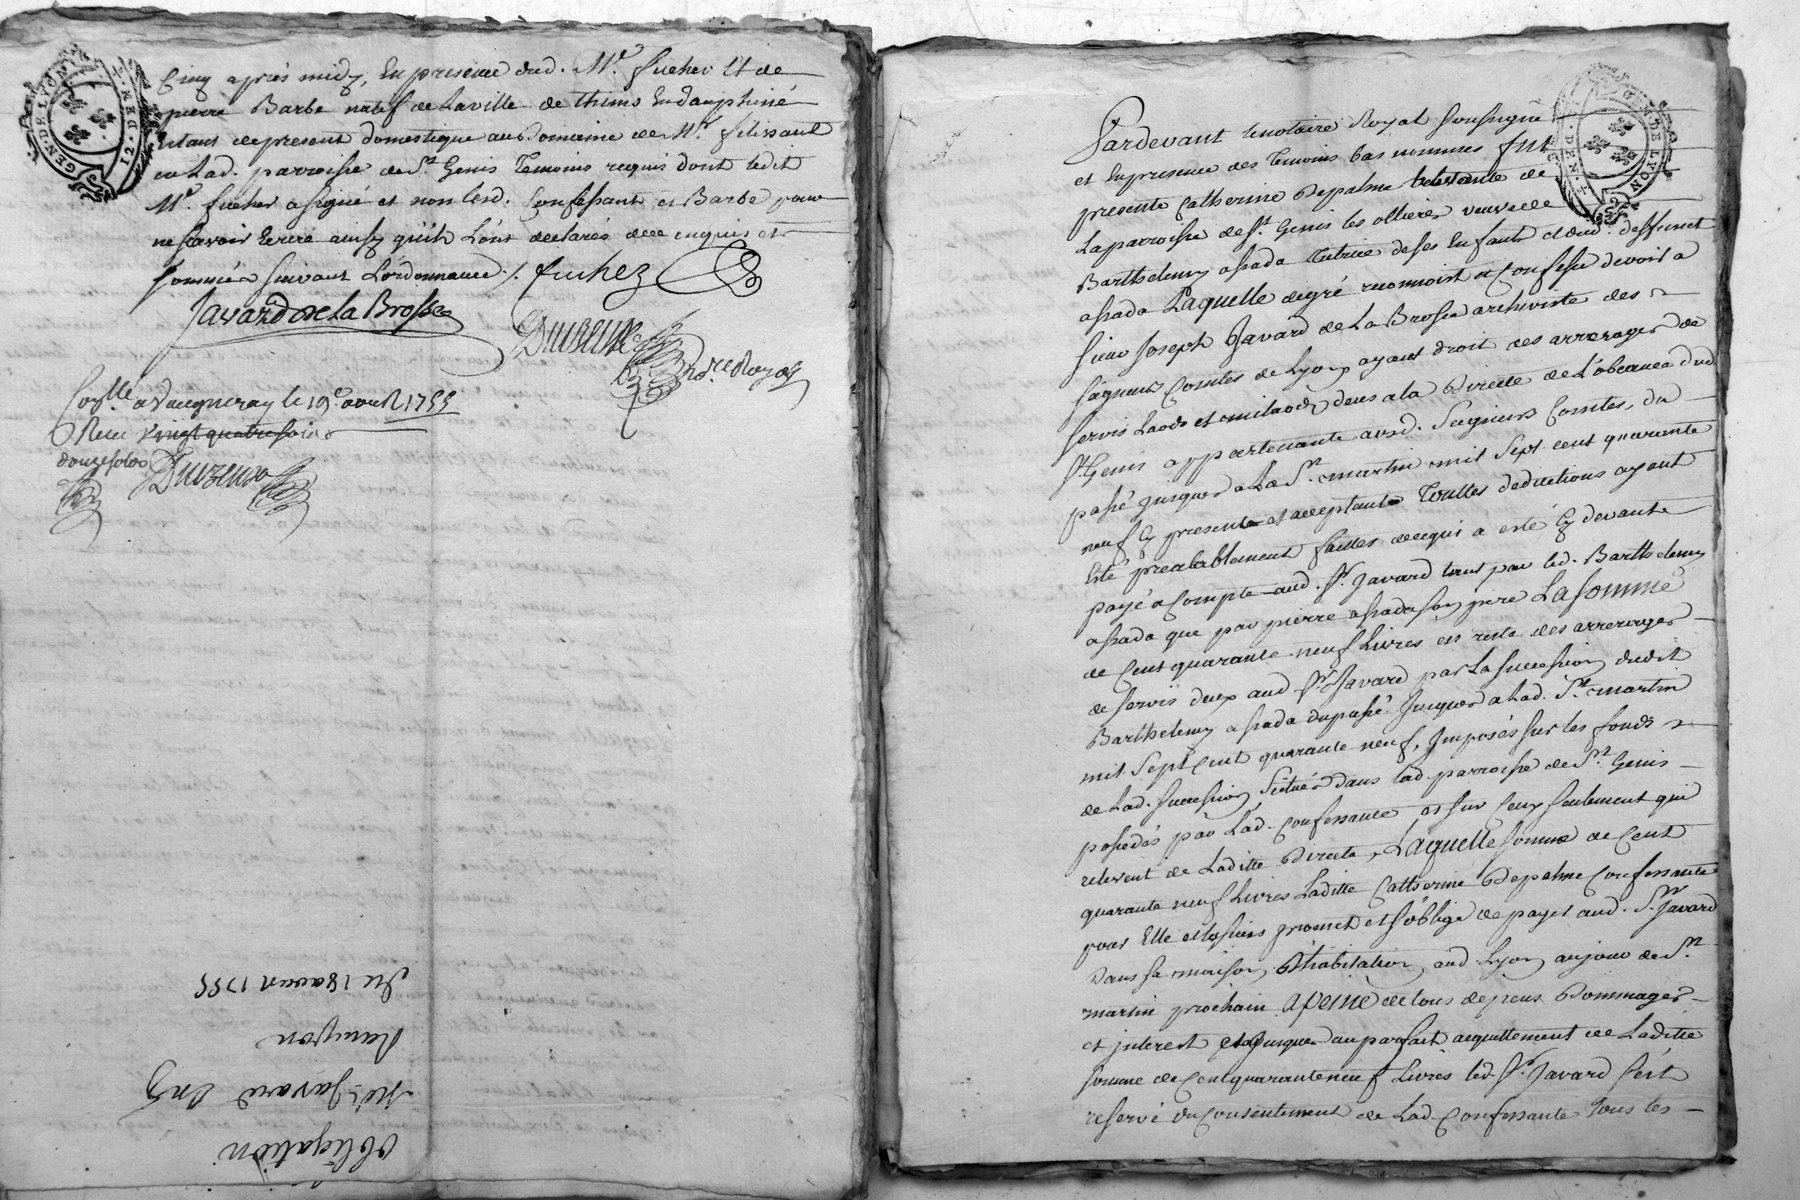 Cinq après midy, En presence dud. Mr. fuchez Et de
pierre Barbe natif de Laville de Thims En dauphiné
Estant de present domestique au Domaine de Mr.
en Lad. parroisse de St. Genis Temoins requis dont ledit
Mr. fuchez a signé et non lesd. Confessante et Barbe pour
ne scavoir Ecrire ainsy qu'ils L'ont declarés de ce enquis et
sommés suivant L'ordonnance ./. fuchez
Javard de la Brosse
Duvzeude
Nre. Royal
Con.lle a Vaugneray le 19e. avril 1755
Receu vingt quatre sols
douze sols
GEN. DE LYON
12. DEN.
Obligation
Sr. Javard
du 18 avril 1755
Pardevant le notaire Royal soussigné
et En presence des Temoins bas nommés fut
presente Catherine Depalme habitante de
La parroisse de St. Genis les ollieres veuve de
Barthelemy assada Tutrice de ses Enfants et dud. deffunct
assada Laquelle de gré reconnoist et Confesse devoir a
sieur Joseph Javard de La Brosse archiviste des
seigneurs Comtes de Lyon, ayant droit des arrerages de
servis Laods et milaods deus a la Directe de L'obeance dud
St. Genis appartenante auxd. Seigneurs Comtes, du
passé jusques a La St. martin mil sept cent quarante
neuf Cy present et acceptant Touttes deductions ayant
Esté prealablement faittes de ce qui a esté Cy devant
payé a Compte aud. Sr. Javard tant par led. Barthelemy
assada que par pierre assada son pere La somme
de Cent quarante neuf Livres en reste des arrerages
de servis deus aud Sr. Javard par La succession dudit
Barthelemy assada du passé jusques a Lad. St. martin
mil Sept Cent quarante neuf, Imposés sur les fonds
de Lad. succession Scitués dans lad. parroisse de St. Genis
possedés par Lad. Confessante et sur Ceux seulement qui
relevent de Laditte Directe, Laquelle somme de Cent
quarante neuf Livres Laditte Catherine Depalme Confessante
pour Elle et les siens promet et s'oblige de payer aud. Sr. Javard
dans sa maison D'habitation aud Lyon au jour de St.
martin prochain a peine de tous depens Dommages
et interest et jusques au parfait acquittement de Laditte
somme de Cent quarante neuf Livres led. Sr. Javard s'est
reservé du consentement de Lad. Confessante Tous les
GEN. DE LYON